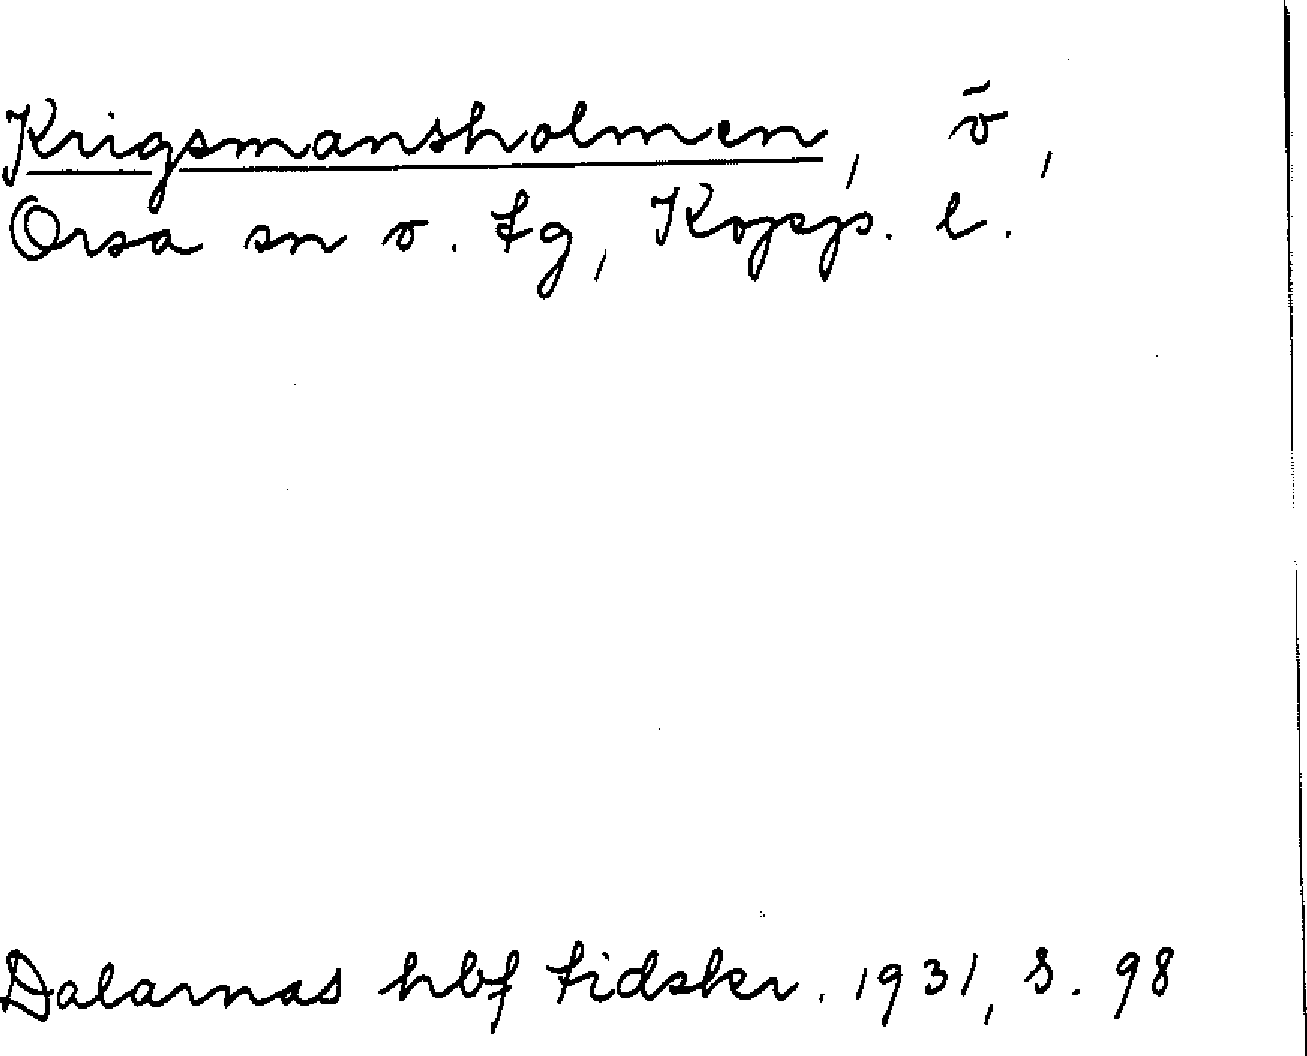 Krigsmansholmen, ö,
Orsa sn o. tg, Kopp. l.
Dalarnas hbf tidskr. 1931, s. 98